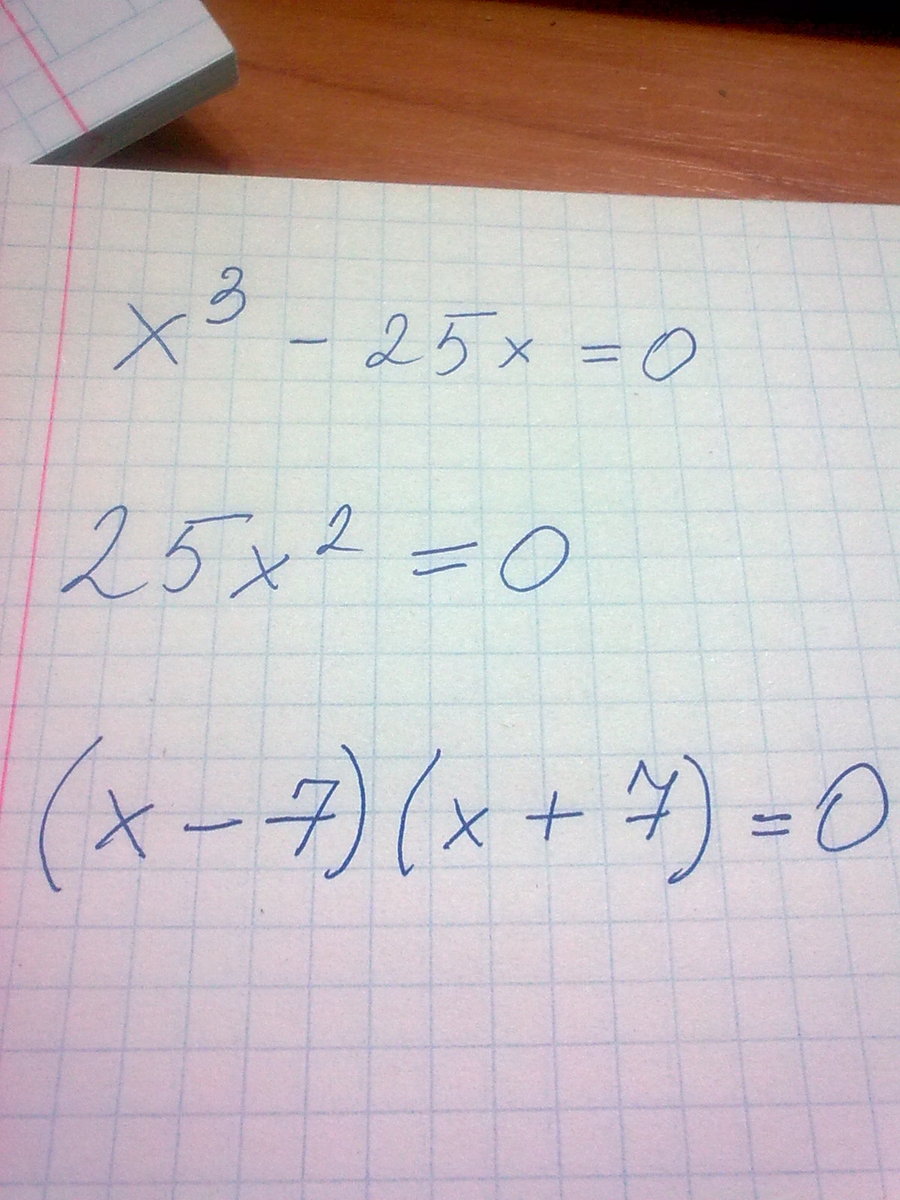 x³ - 25x = 0
25x² = 0
(x - 7)(x + 7) = 0